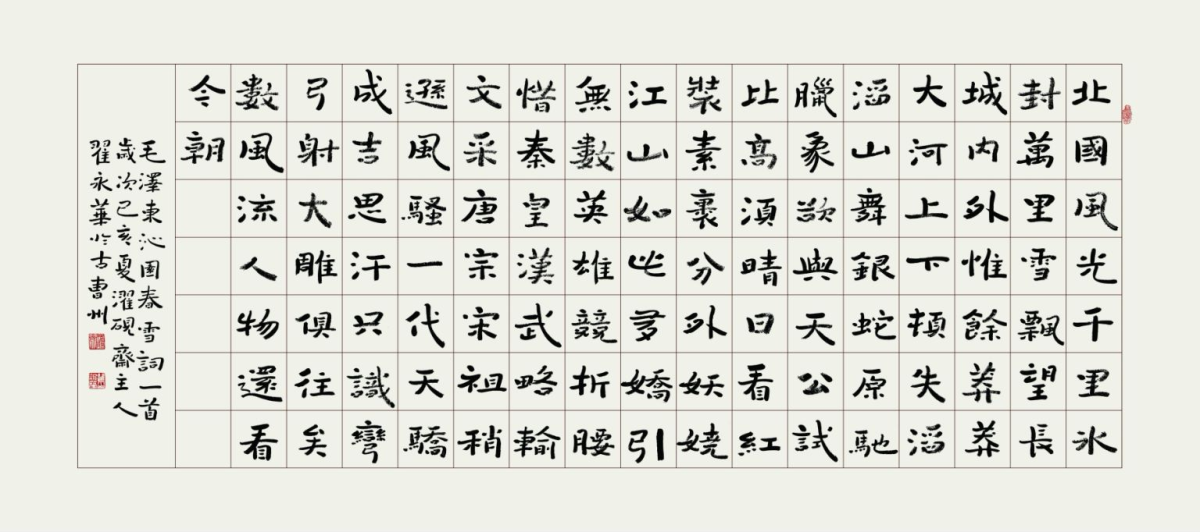 北國風光千里氷
封萬里雪飄望長
城内外惟餘莽莽
大河上下頓失滔
滔山舞銀蛇原馳
臘象欲與天公試
比高須晴日看紅
裝素裹分外妖嬈
江山如此多嬌引
無數英雄競折腰
惜秦皇漢武略輸
文采唐宗宋祖稍
遜風騷一代天驕
成吉思汗只識彎
弓射大雕俱往矣
數風流人物還看
今朝
毛澤東沁園春雪詞一首
歲次己亥夏濯硯齋主人
翟永華於古曹州